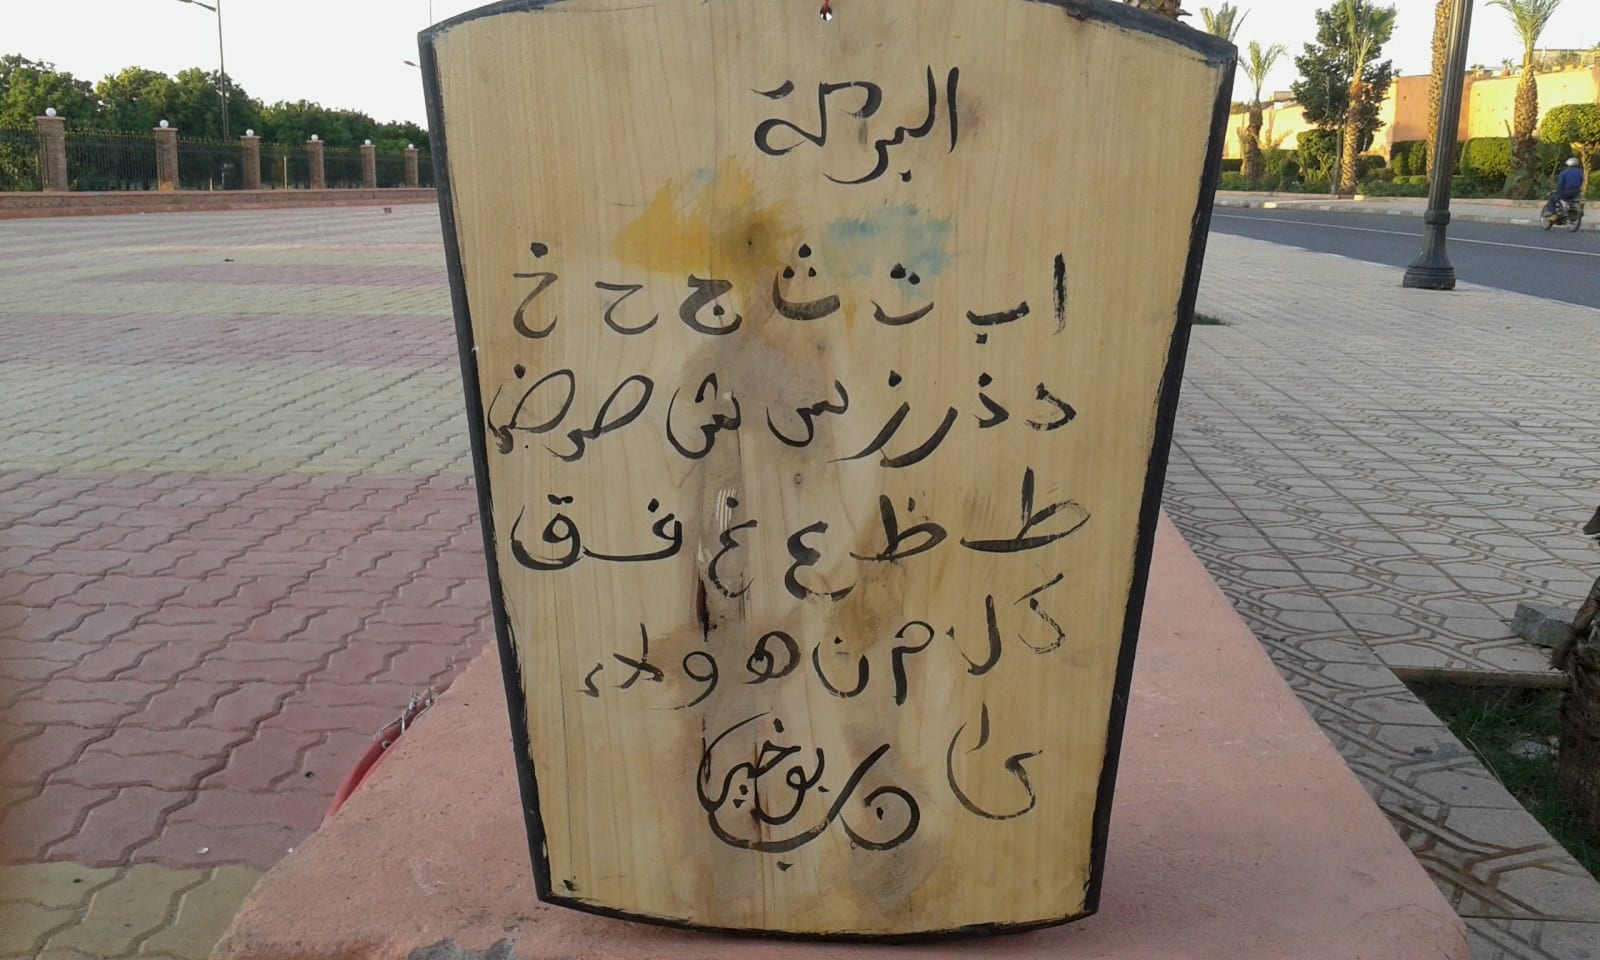 البركة
ا ب ت ث ج ح خ
د ذ ر ز س ش ص ض
ط ظ ع غ ف ق
ك ل م ن ه و لا ء
ى
بوخير